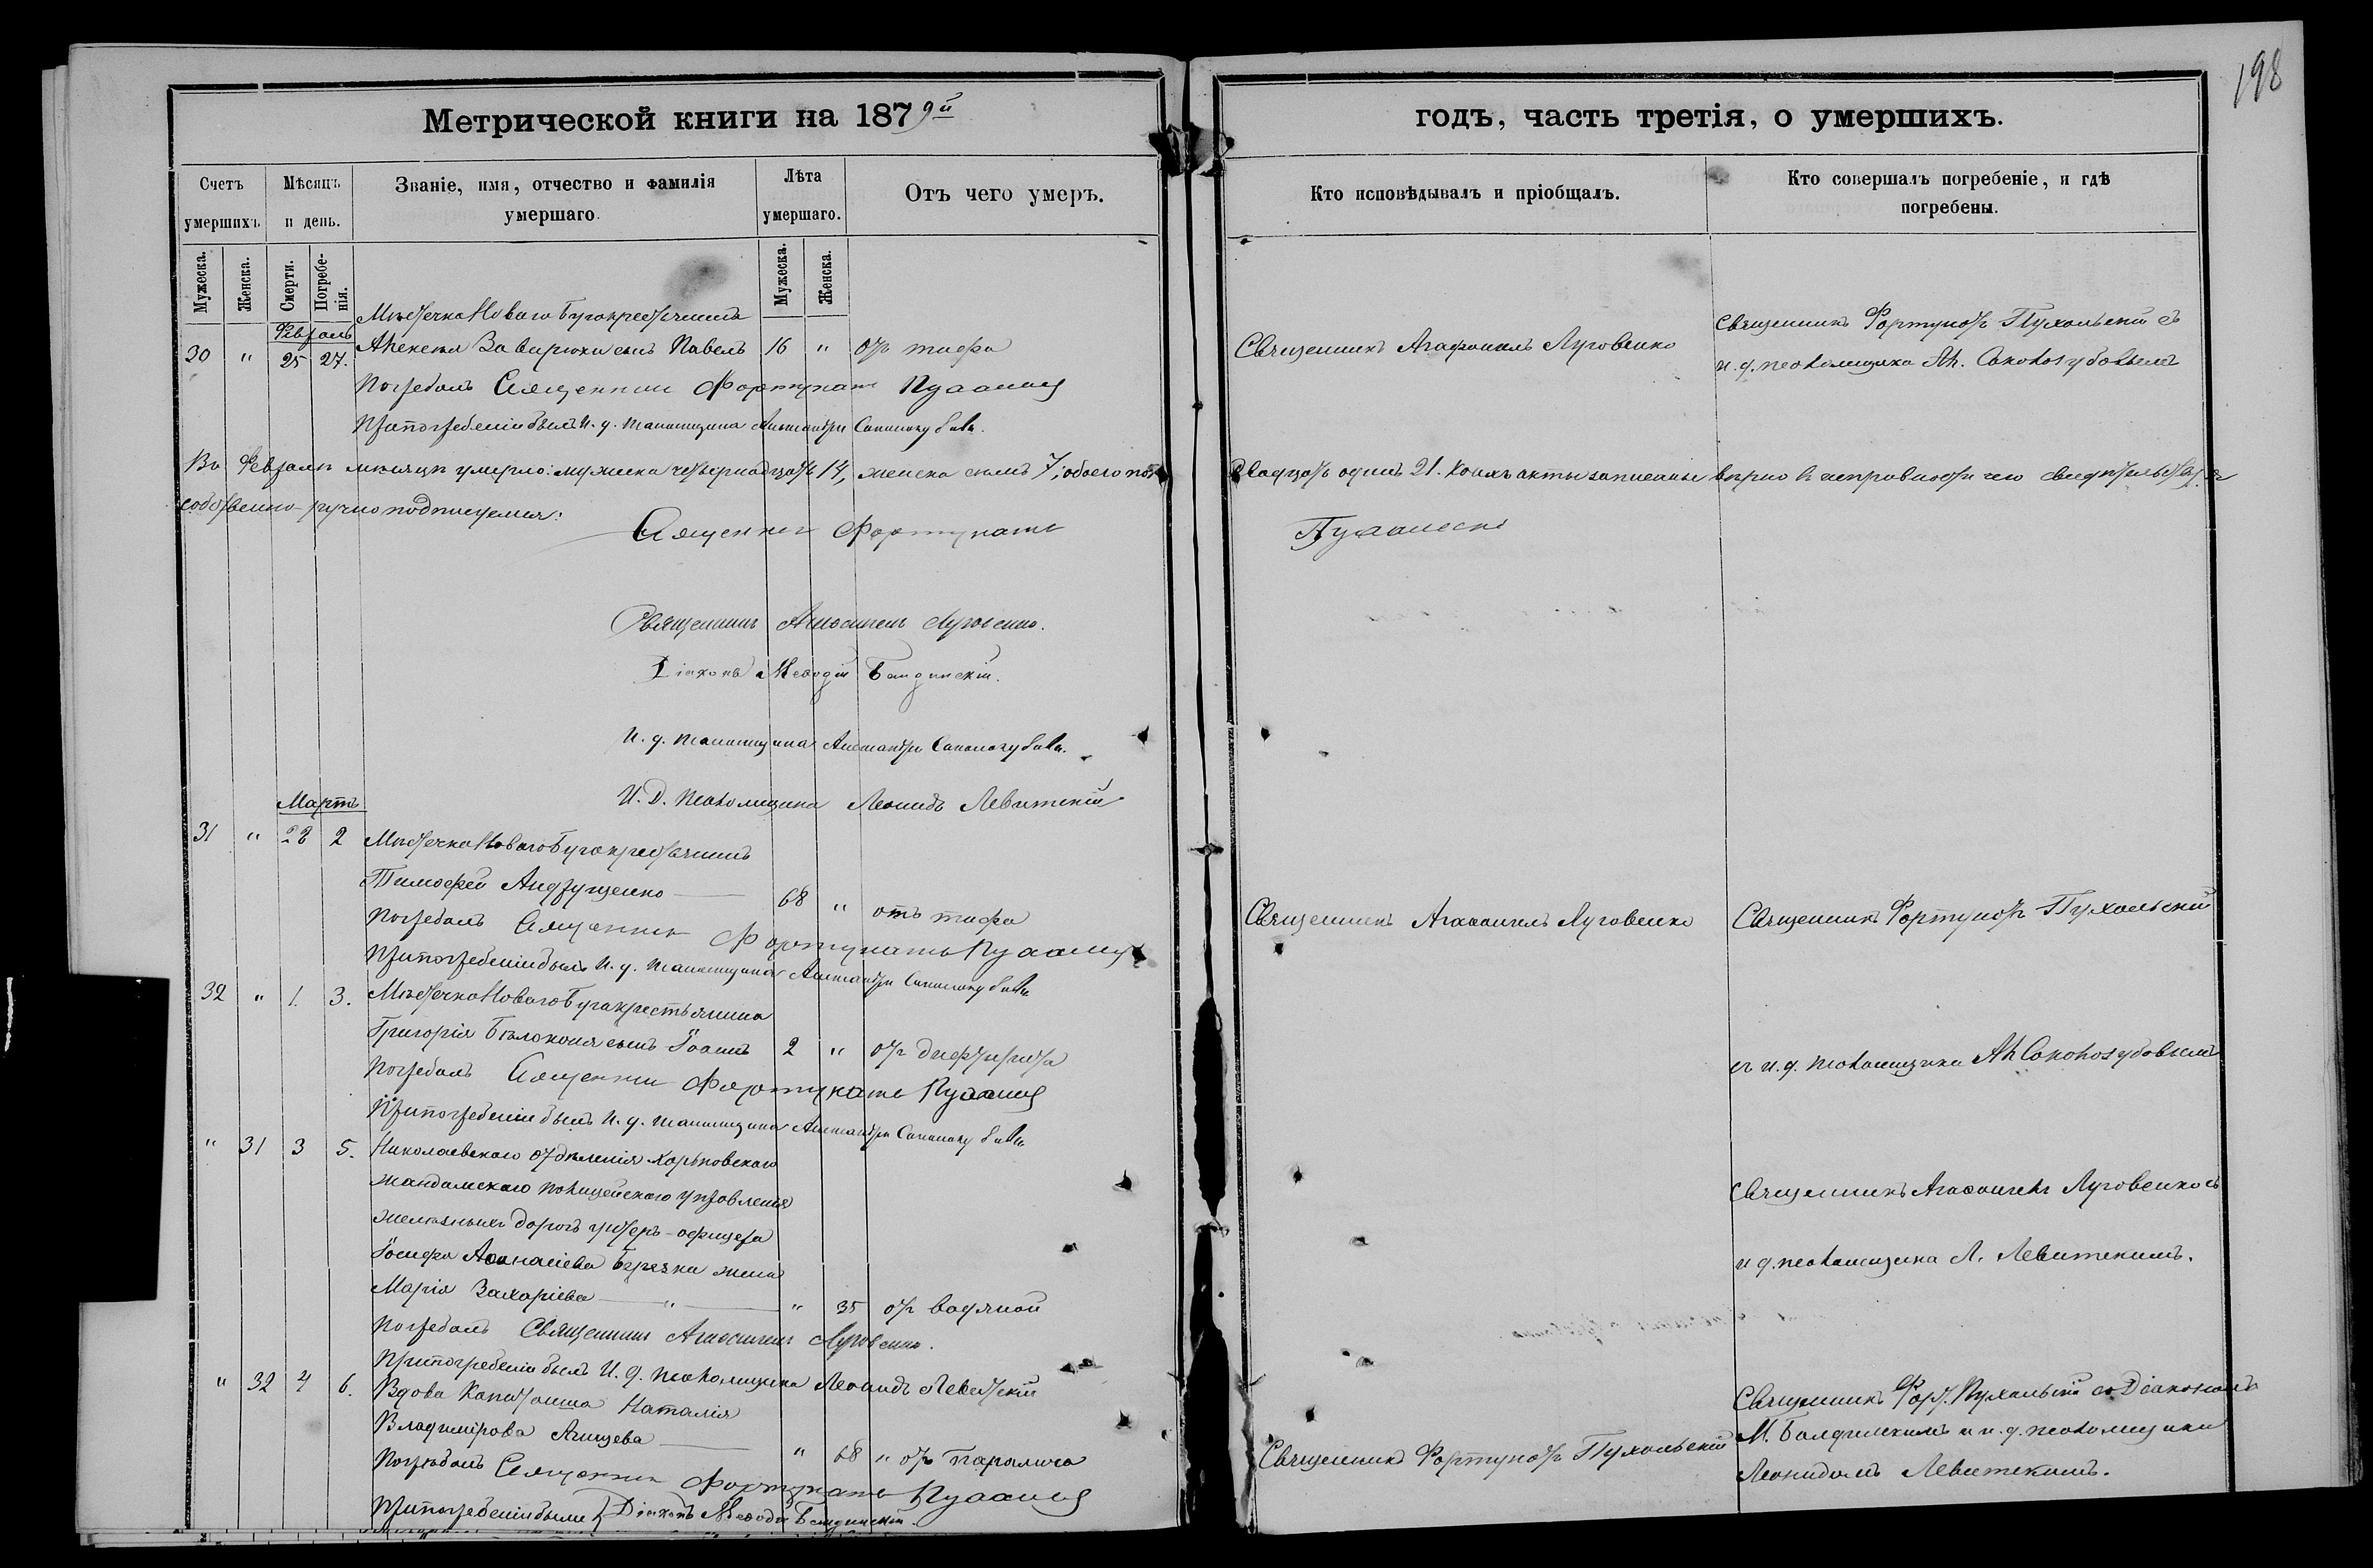 Метрической книги на 1879й
годъ, часть третія, о умершихъ.
198
Счетъ умершихъ.
Мѣсяцъ и день.
Званіе, имя, отчество и фамилія умершаго.
Лѣта умершаго.
Отъ чего умеръ.
Кто исповѣдывалъ и пріобщалъ.
Кто совершалъ погребеніе, и гдѣ погребены.
Мужеска.
Женска.
Смерти.
Погребенія.
Мужеска.
Женска.
Февраль
Мѣстечка Новаго Буга крестьянина
30 " 25 27. Алексѣя Завирюхи сынъ Павелъ 16 " отъ тифа
Священникъ Агафангелъ Луговенко
Священникъ Фортунатъ Пухальскій съ
и. д. псаломщика Ал. Сокологубовымъ
Погребалъ Священникъ Фортунатъ Пухальскій
При погребеніи былъ И. д. псаломщика Александръ Сокологубовъ.
Въ Февралѣ мѣсяцѣ умерло: мужеска четырнадцать 14, женска семь 7, обоего пола
двадцать одинъ 21. Коихъ акты записаны вѣрно въ исправности чего свидѣтельствуя
собственно-ручно подписуемся:
Священникъ Фортунатъ
Пухальскій
Священникъ Агаѳангелъ Луговенко.
Діаконъ Меѳодій
И. д. псаломщика Александръ Сокологубовъ.
И. д. псаломщика Леонидъ Левитскій
Мартъ
31 " 28 2 Мѣстечка Новаго Буга крестьянинъ
Тимофей Андрущенко 68 " отъ тифа
Священникъ Агаѳангелъ Луговенко
Священникъ Фортунатъ Пухальскій
Погребалъ Священникъ Фортунатъ Пухальскій
При погребеніи былъ И. д. псаломщика Александръ Сокологубовъ
32 " 1. 3. Мѣстечка Новаго Буга крестьянина
Григорія Бѣлоконя сынъ Іоаннъ 2 " отъ дифтерита
съ и. д. псаломщика Ал. Сокологубовымъ
Погребалъ Священникъ Фортунатъ Пухальскій
При погребеніи былъ И. д. псаломщика Александръ Сокологубовъ
" 31 3 5. Николаевскаго отдѣленія Харьковскаго
жандамскаго полицейскаго управленія
желѣзныхъ дорогъ унтеръ-офицера
Іосифа Аѳанасіева жена
Марія Захаріева " " 35 отъ водяной
Священникъ Агаѳангелъ Луговенко съ
и д. псаломщика Л. Левитскимъ.
Погребалъ Священникъ Агаѳангелъ Луговенко.
При погребеніи былъ И. д. псаломщика Леонидъ Левитскій
" 32 4 6. Вдова Капитанша Наталія
Владимірова " 68 " отъ паралича
Священникъ Фортунатъ Пухальскій
Священникъ Форт. Пухальскій съ Діакономъ
М. и и. д. псаломщика
Леонидомъ Левитскимъ.
Погребалъ Священникъ Фортунатъ Пухальскій
При погребеніи были Діаконъ Меѳодій